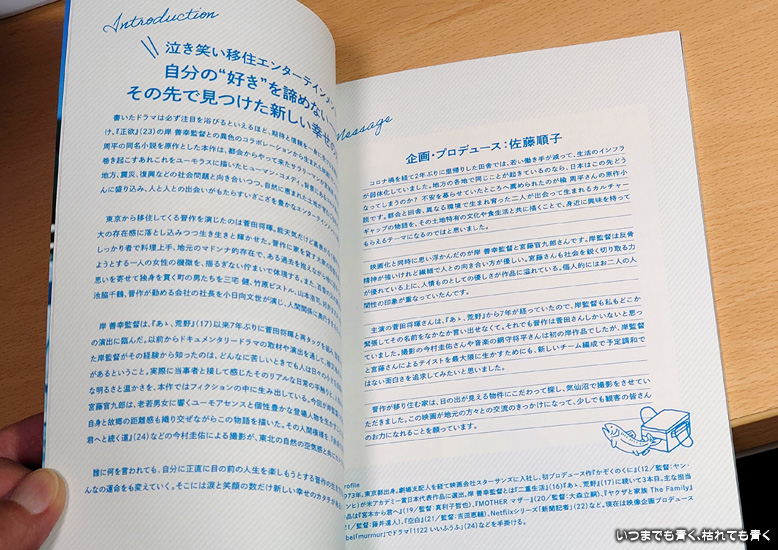 Introduction
泣き笑い移住エンターテインメ
自分の“好き”を諦めない
その先で見つけた新しい幸せの
書いたドラマは必ず注目を浴びるといえるほど、期待と信頼を一身に
け、『正欲』(23)の岸 善幸監督との異色のコラボレーションから生まれた
周平の同名小説を原作とした本作は、都会からやって来たサラリーマンが
巻き起こすあれこれをユーモラスに描いたヒューマン・コメディ。
地方、震災、復興などの社会問題と向き合いつつ、自然に恵まれた土地が
んに盛り込み、人と人との出会いがもたらすいざこざを豊かなエンターテイン
東京から移住してくる晋作を演じたのは菅田将暉。能天気だけど
大の存在感に落とし込みつつ生き生きと輝かせた。晋作に家を貸す
しっかり者で料理上手、地元のマドンナ的存在で、ある過去を抱えながら
ようとする一人の女性の機微を、揺るぎない佇まいで体現する。また、百香
思いを寄せて独身を貫く町の男たちを三宅 健、竹原ピストル、山本浩司、
池脇千鶴、晋作が勤める会社の社長を小日向文世が演じ、人間関係に
岸 善幸監督は、『あゝ、荒野』(17)以来7年ぶりに菅田将暉と再タッグを
の演出に臨んだ。以前からドキュメンタリードラマの取材や演出を通して、
た岸監督がその経験から知ったのは、どんなに苦しいときでも人は日々の
があるということ。実際に当事者と接して感じたそのリアルな日常の手触り
な明るさと温かさを、本作ではフィクションの中に生み出している。今回が
宮藤官九郎は、老若男女に響くユーモアセンスと個性豊かな登場人物を
自身と故郷の距離感も織り交ぜながらこの物語を描いた。その人間模様を、
君へと続く道』(24)などの今村圭佑による撮影が、東北の自然の空気感と
誰に何を言われても、自分に正直に目の前の人生を楽しもうとする晋作の
んなの運命をも変えていく。そこには涙と笑顔の数だけ新しい幸せのカタチが
Message
企画・プロデュース:佐藤順子
コロナ禍を経て2年ぶりに里帰りした田舎では、若い働き手が減って、生活のインフラ
が弱体化していました。地方の各地で同じことが起きているのなら、日本はこの先どう
なってしまうのか? 不安を募らせていたところへ薦められたのが楡 周平さんの原作小
説です。都会と田舎、異なる環境で生まれ育った二人が出会って生まれるカルチャー
ギャップの物語を、その土地特有の文化や食生活と共に描くことで、身近に興味を持って
もらえるテーマになるのではと思いました。
映画化と同時に思い浮かんだのが岸 善幸監督と宮藤官九郎さんです。岸監督は反骨
精神が強いけれど繊細で人との向き合い方が優しい。宮藤さんも社会を鋭く切り取る力
が優れている上に、人情ものとしての優しさが作品に溢れている。個人的にはお二人の人
間性の印象が重なっていたんです。
主演の菅田将暉さんは、『あゝ、荒野』から7年が経っていたので、岸監督も私もどこか
緊張してその名前をなかなか言い出せなくて。それでも晋作は菅田さんしかいないと思っ
ていました。撮影の今村圭佑さんや音楽の網守将平さんは初の岸作品でしたが、岸監督
と宮藤さんによるテイストを最大限に生かすためにも、新しいチーム編成で予定調和で
はない面白さを追求してみたいと思いました。
晋作が移り住む家は、日の出が見える物件にこだわって探し、気仙沼で撮影をさせてい
ただきました。この映画が地元の方々との交流のきっかけになって、少しでも観客の皆さん
のお力になれることを願っています。
rofile
973年、東京都出身。劇場支配人を経て映画会社スターサンズに入社し、初プロデュース作『かぞくのくに』(12／監督:ヤン・
ンヒ)が米アカデミー賞日本代表作品に選出。岸 善幸監督とは『二重生活』(16)『あゝ、荒野』(17)に続いて3本目。主な担当
品は『宮本から君へ』(19／監督:真利子哲也)、『MOTHER マザー』(20／監督:大森立嗣)、『ヤクザと家族 The Family』
1／監督:藤井道人)、『空白』(21／監督:吉田恵輔)、Netflixシリーズ「新聞記者」(22)など。現在は映像企画プロデュース
bel「murmur」でドラマ「1122 いいふうふ」(24)などを手掛ける。
いつまでも青く、枯れても青く